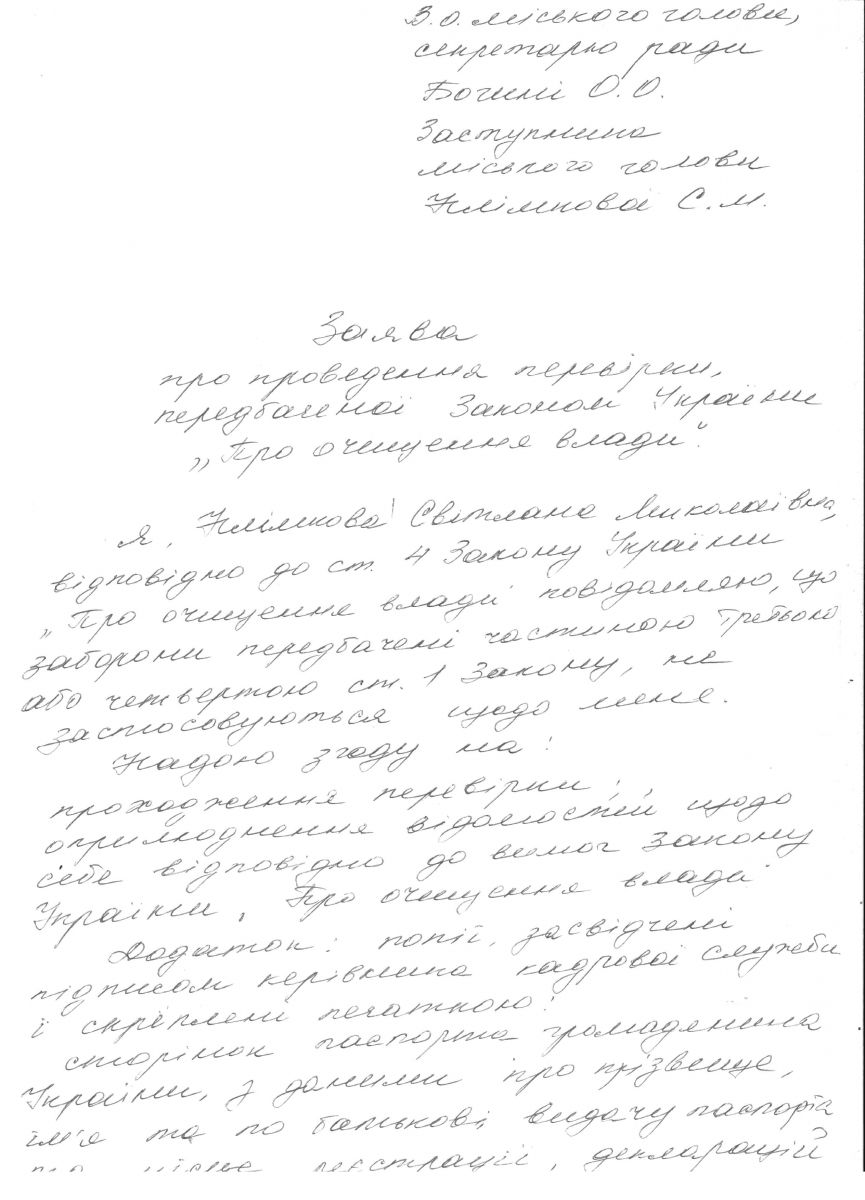 В.о. міського голови,
секретарю ради
Богині О.О.
Заступника
міського голови
Клімкової С.М.
Заява
про проведення перевірки,
передбаченої Законом України
„Про очищення влади".
Я, Клімкова Світлана Миколаївна,
відповідно до ст. 4 Закону України
„Про очищення влади" повідомляю, що
заборони передбачені частиною третьою
або четвертою ст. 1 Закону, не
застосовуються щодо мене.
Надаю згоду на:
проходження перевірки;
оприлюднення відомостей щодо
себе відповідно до вимог Закону
України „Про очищення влади"
Додаток: копії, засвідчені
підписом керівника кадрової служби
і скріплені печаткою:
сторінок паспорта громадянина
України, з даними про прізвище,
ім'я та по батькові, видачу паспорта
місце реєстрації, декларацій